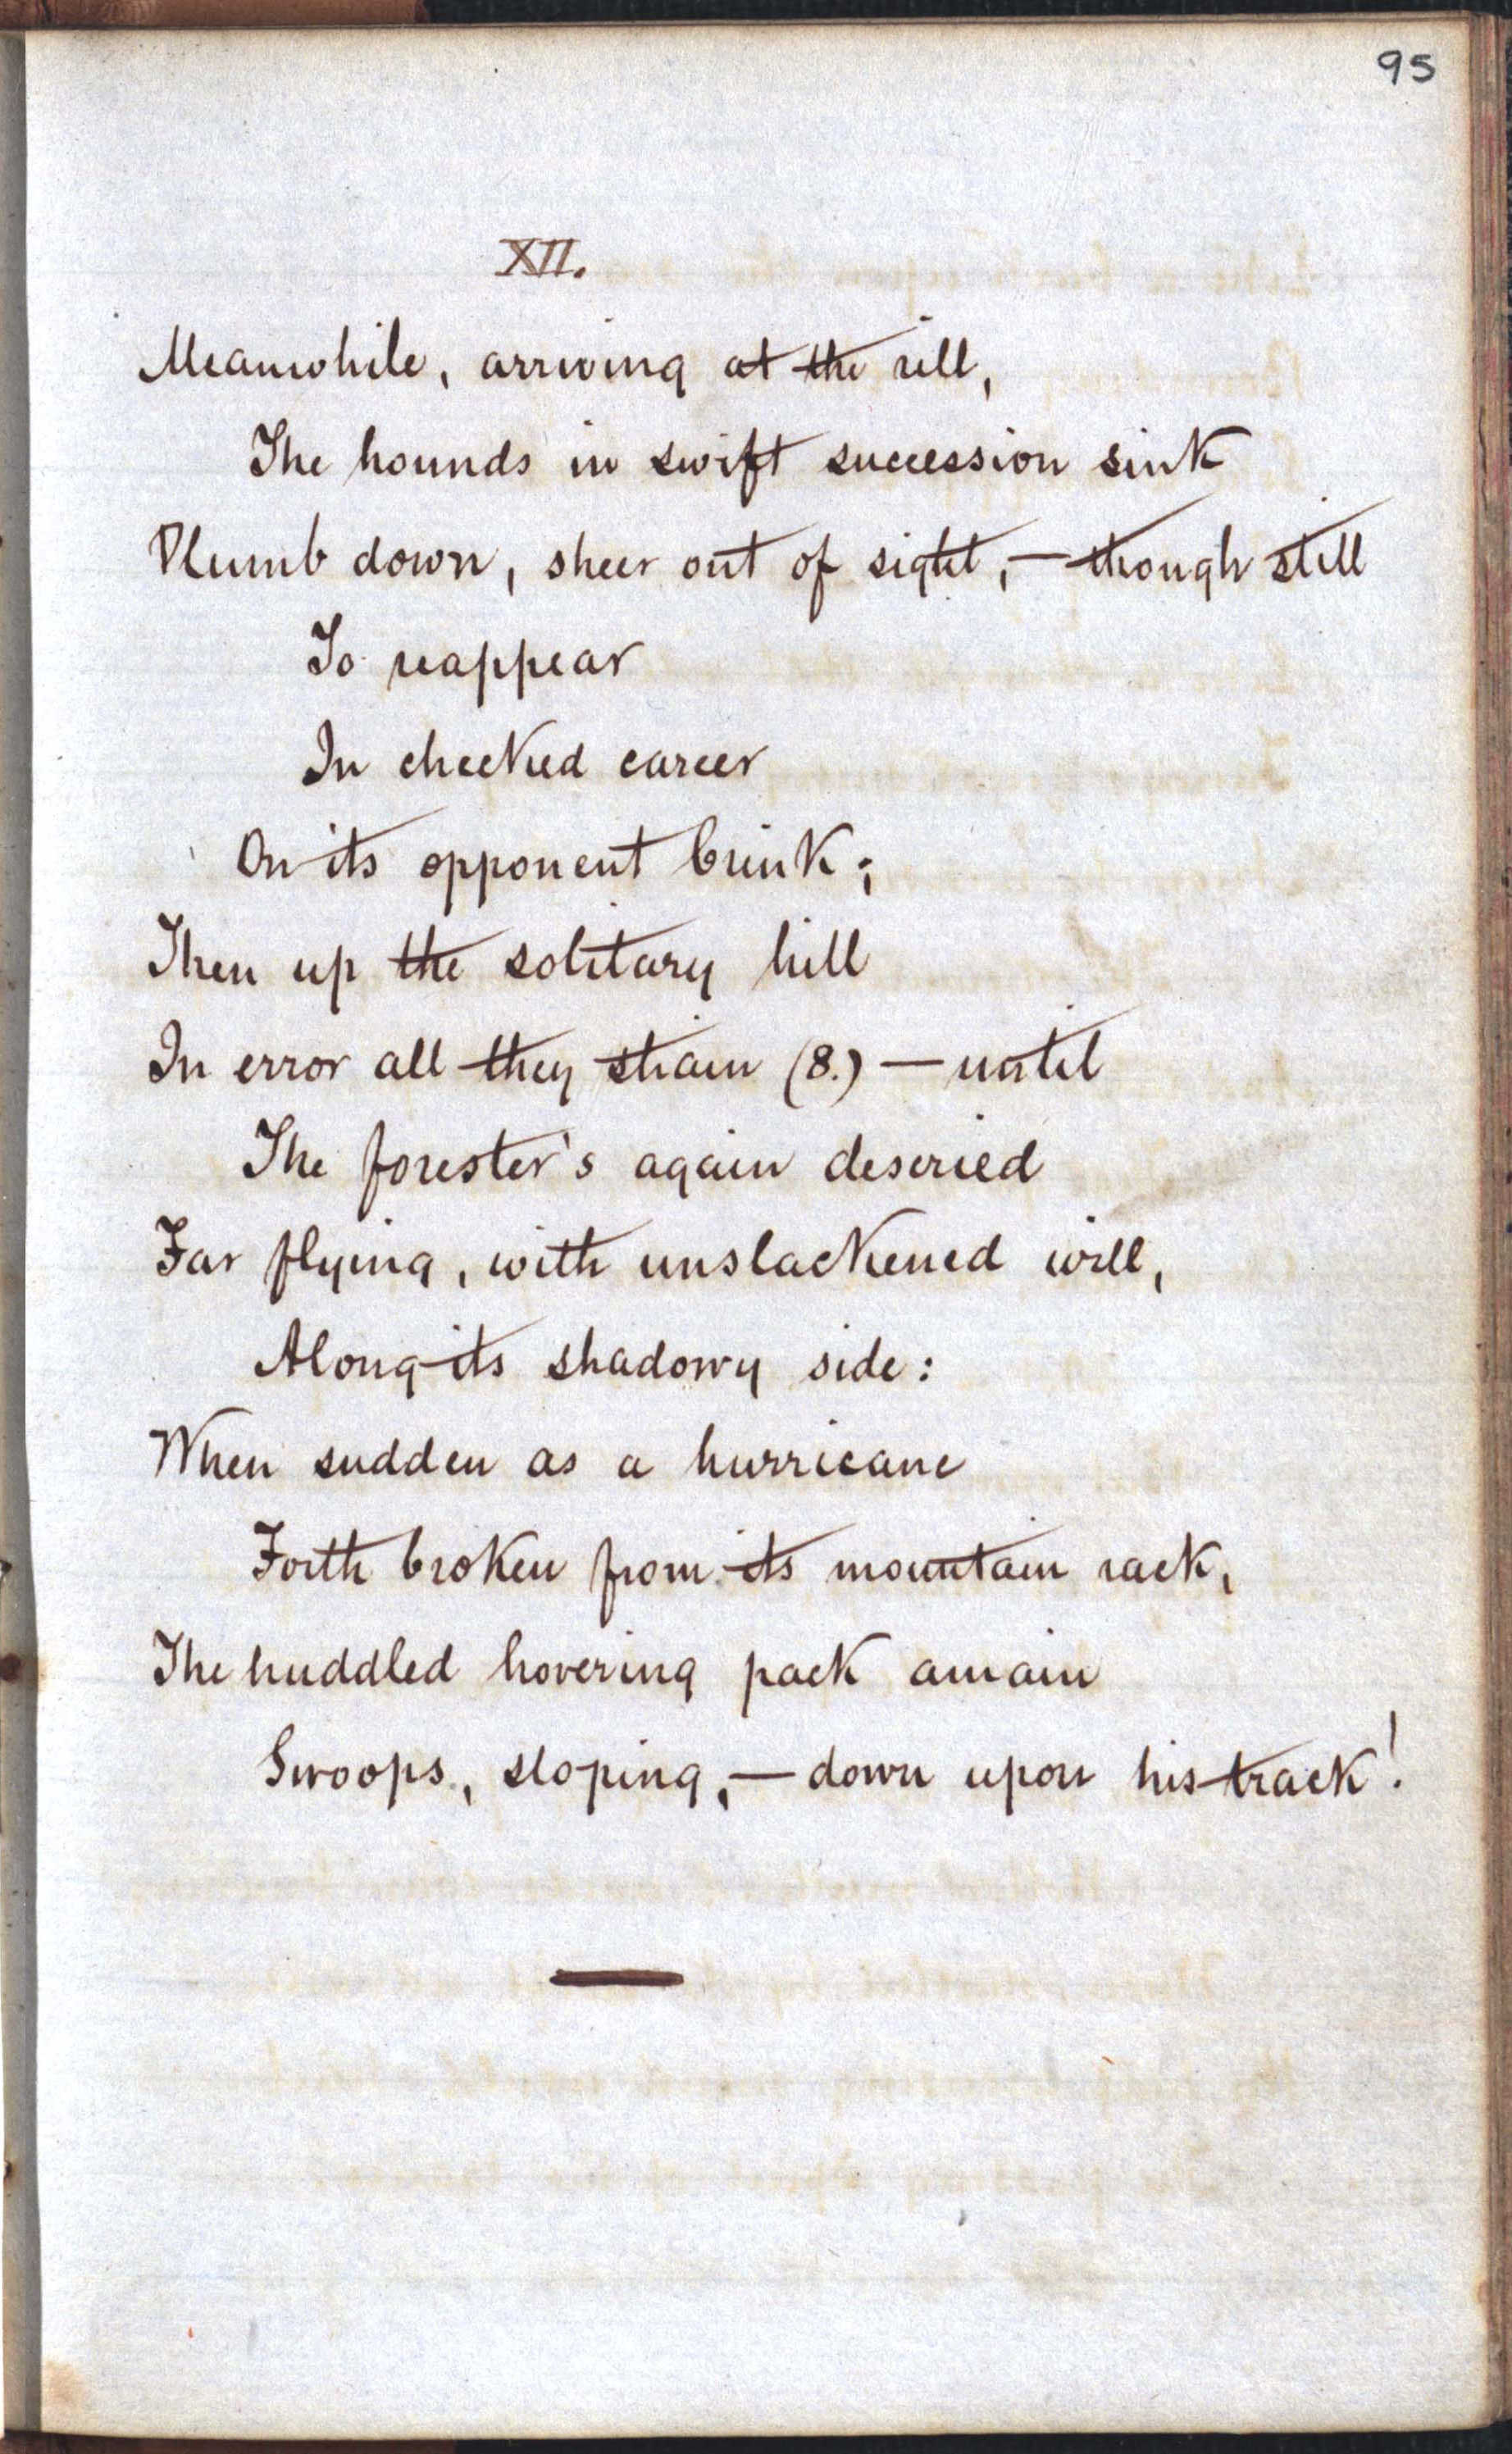 95
XII.
Meanwhile, arriving at the rill,
The hounds in swift succession sink
Plumb down, sheer out of sight, — though still
To reappear
In checked career
On its opponent brink;
Then up the solitary hill
In error all they strain (8.) — until
The forester's again descried
Far flying, with unslackened will,
Along its shadowy side:
When sudden as a hurricane
Forth broken from its mountain rack,
The huddled hovering pack amain
Swoops, sloping, — down upon his track!